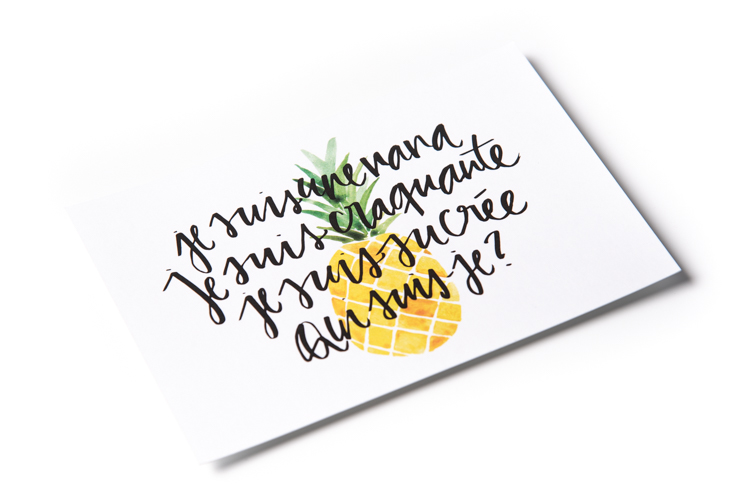 je suis une nana
je suis craquante
je suis sucrée
Qui suis-je ?